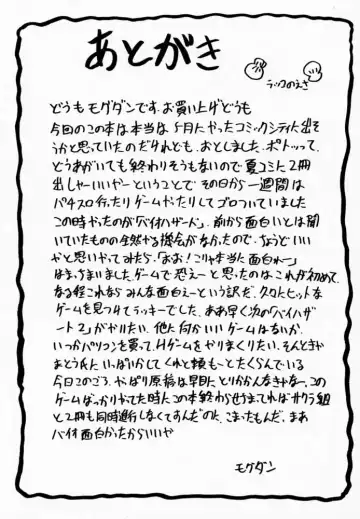 あとがき
ラッコのえさ
どうもモグダンです。お買い上げどうも
今回のこの本は本当は5月にやったコミックシティに出そ
うかと思っていたのだけれども、おとしました。ポトッって、
どうあがいても終わりそうもないので夏コミに2冊
出しゃーいいやーということで その日から一週間は
パチスロ行ったりゲームやったりしてブロっいていました
この時やったのが「バイオハザード」。前から面白いとは聞
いていたものの全然やる機会がなかったので、ちょうどいい
やと思いやってみたら、「おお!こりゃ本当に面白れー」
はまっちまいました。ゲームで恐えーと思ったのはこれが初めて、
なる程これなら みんな面白えーという訳だ。久々にヒットな
ゲームを見つけてラッキーでした。ああ早く次の「バイオハザ
ード2」がやりたい。他に何かいいゲームはないか、
いっかパソコンを買って、Hゲームをやりまくりたい。そんときゃ
あとう氏に いっぱいかしてくれと頼もーとたくらんでいる
今日このごろ。やっぱり原稿は早目にとりかかんなきゃなー。この
ゲームばっかりやってた時にこの本終わらせちまってればサクラ組
と2冊も同時進行しなくてすんだのに、こまったもんだ。まあ
バイオ面白かったからいいや
モグダン